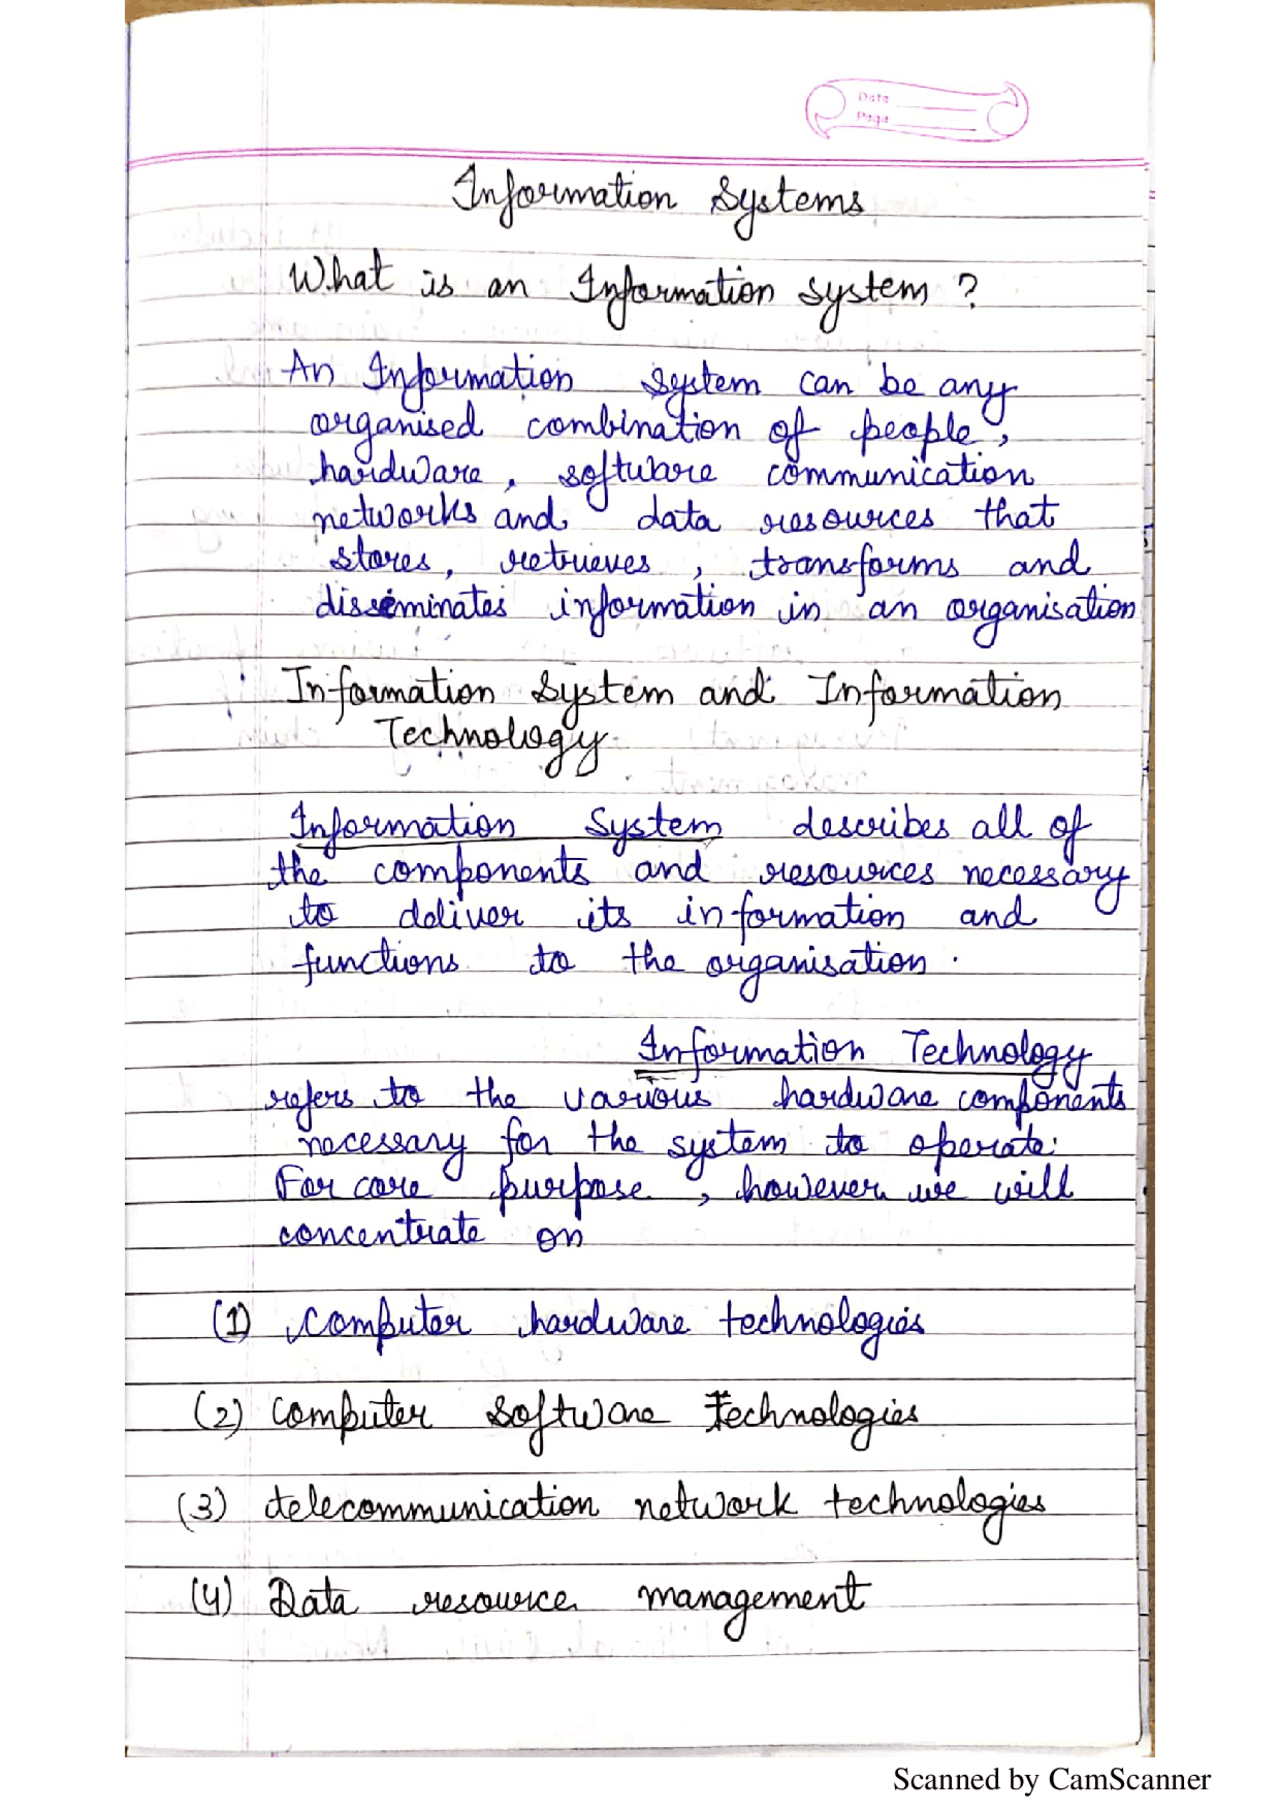 Date
Page
Information Systems
What is an Information system ?
An Information system can be any
organised combination of people,
hardware, software communication
networks and data resources that
stores, retrieves, transforms and
disseminates information in an organisation
Information System and Information
Technology
Information System describes all of
the components and resources necessary
to deliver its information and
functions to the organisation.
Information Technology
refers to the various hardware components
necessary for the system to operate.
For core purpose, however we will
concentrate on
(1) computer hardware technologies
(2) computer software technologies
(3) telecommunication network technologies
(4) Data resource management
Scanned by CamScanner